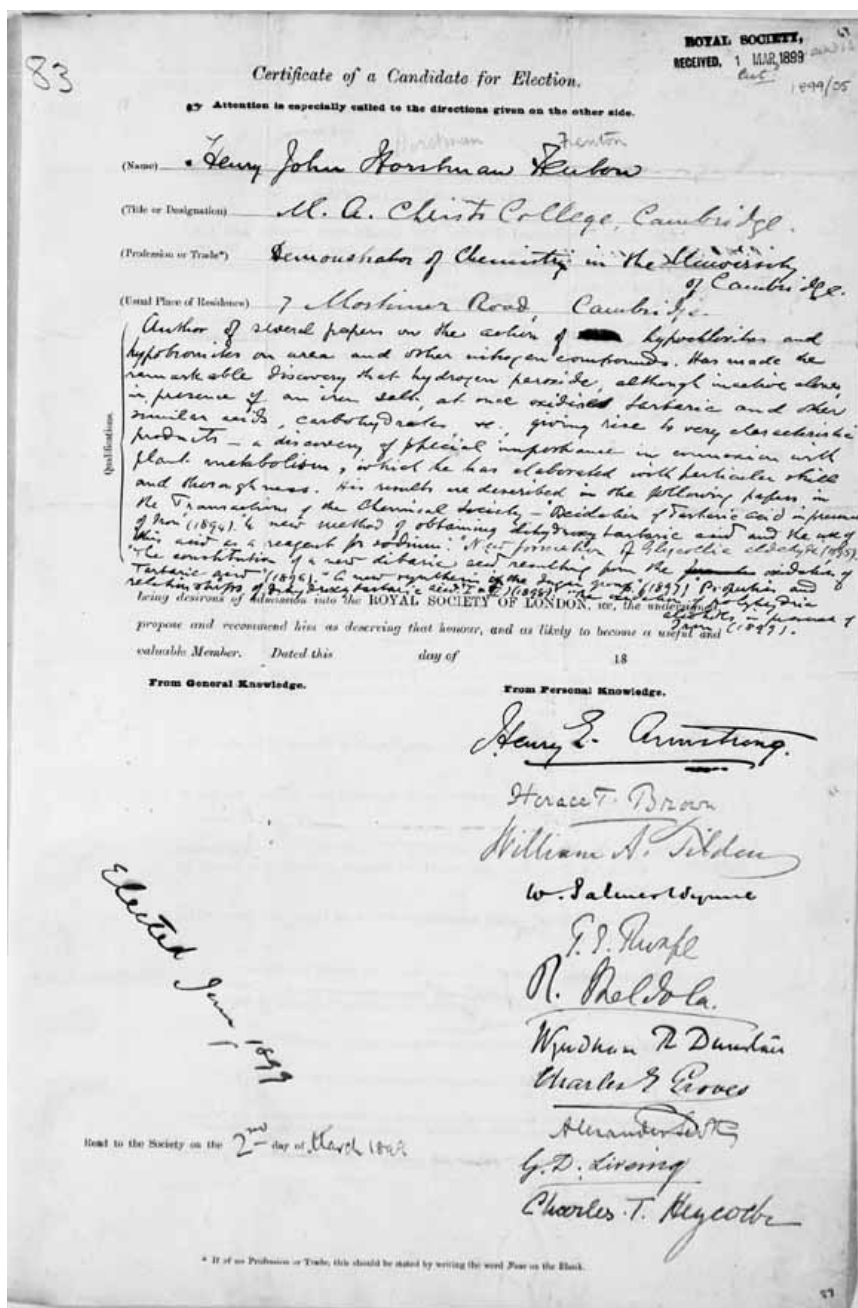 83
ROYAL SOCIETY,
RECEIVED, 1 MAR 1899
1899/05
Certificate of a Candidate for Election.
Attention is especially called to the directions given on the other side.
Horstman Fenton
(Name) Henry John Horstman Fenton
(Title or Designation) M. A. Christs College, Cambridge.
(Profession or Trade*) Demonstrator of Chemistry in the University
of Cambridge.
(Usual Place of Residence) 7 Mortimer Road, Cambridge.
Qualifications.
Author of several papers on the action of hypochlorites and
hypobromites on urea and other nitrogen compounds. Has made the
remarkable discovery that hydrogen peroxide, although inactive alone,
in presence of an iron salt, at once oxidises tartaric and other
similar acids, carbohydrates &c, giving rise to very characteristic
products – a discovery of special importance in connexion with
plant metabolism, which he has elaborated with particular skill
and thoroughness. His results are described in the following papers in
the Transactions of the Chemical Society – Oxidation of Tartaric acid in presence
of Iron (1894). "A new method of obtaining dihydroxytartaric acid and the use of
this acid as a reagent for sodium." "New formation of Glycollic aldehyde" (1895).
"The constitution of a new dibasic acid resulting from the oxidation of
Tartaric acid" (1896). "A new synthesis in the sugar group" (1897). "Properties and
relationships of dihydroxytartaric acid" I & II (1898). "The oxidation of polyhydric
alcohols in presence of
Iron (1899).
being desirous of admission into the ROYAL SOCIETY OF LONDON, we, the undersigned
propose and recommend him as deserving that honour, and as likely to become a useful and
valuable Member. Dated this day of 18
From General Knowledge. From Personal Knowledge.
Henry E. Armstrong.
Horace T. Brown
William A. Tilden
W. Palmer Wynne
T. E. Thorpe
R. Meldola.
Wyndham R Dunstan
Charles E Groves
Alexander Scott
G. D. Liveing
Charles. T. Heycock
Elected June 1899
Read to the Society on the 2nd day of March 1899
* If of no Profession or Trade, this should be stated by writing the word None on the Blank.